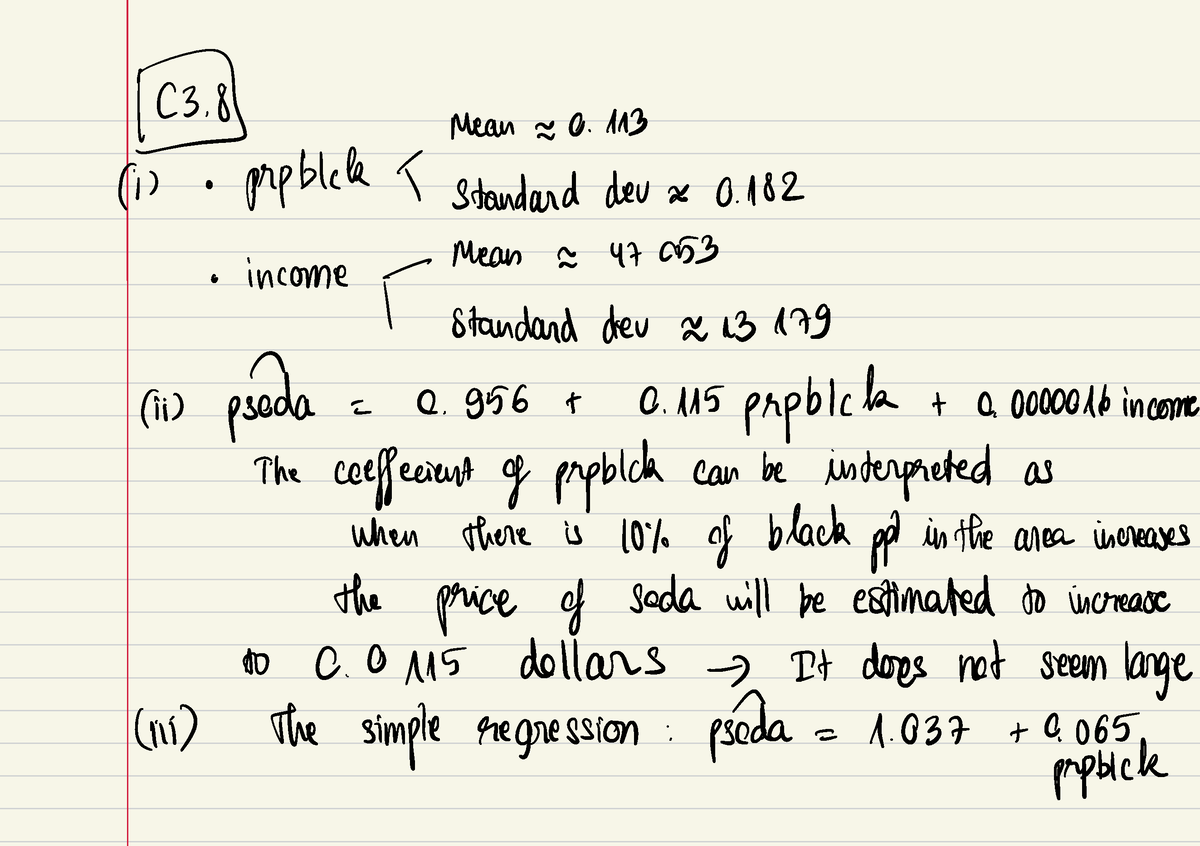 C3.8
Mean ≈ 0.113
(i) • prpblck
Standard dev ≈ 0.182
Mean ≈ 47 053
• income
Standard dev ≈ 13 179
(ii) psoda^ = 0.956 + 0.115 prpblck + 0.0000016 income
The coeffecient of prpblck can be interpreted as
when there is 10% of black ppl in the area increases
the price of soda will be estimated to increase
to 0.0115 dollars → It does not seem large
(iii) The simple regression : psoda^ = 1.037 + 0.065
prpblck